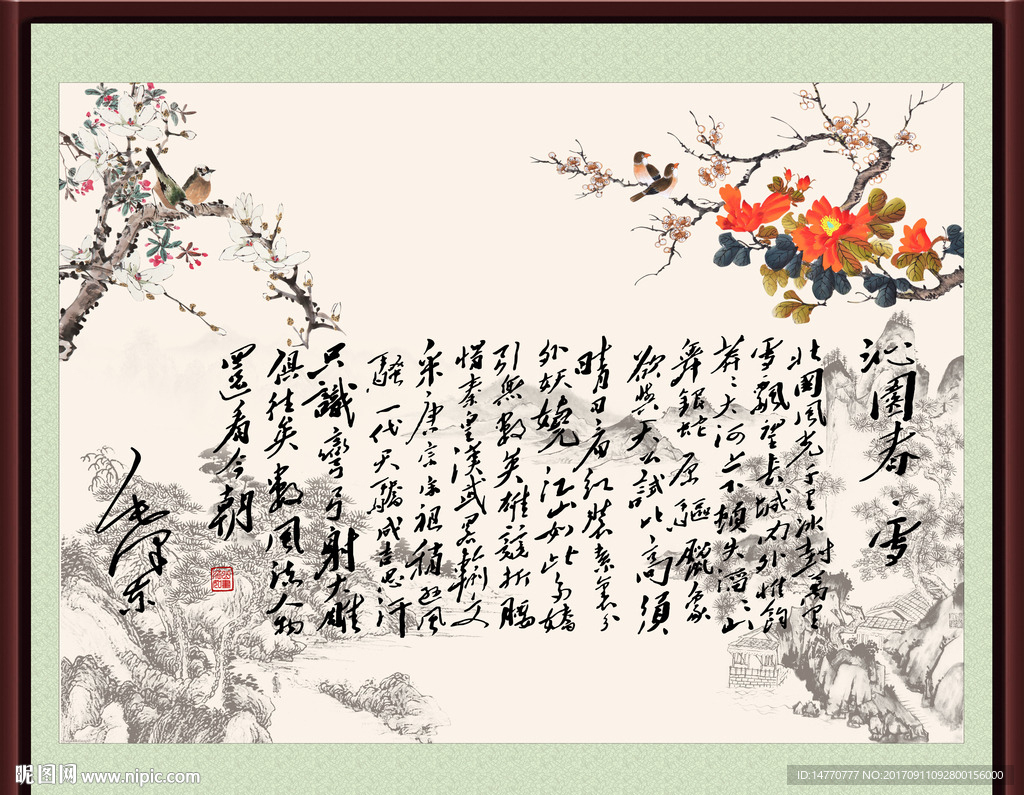 沁園春·雪
北國風光千里冰封萬里
雪飄望長城内外惟餘
莽〻大河上下頓失滔〻山
舞銀蛇原驅臘象
欲與天公試比高須
晴日看红裝素裹分
外妖嬈江山如此多嬌
引無數英雄競折腰
惜秦皇漢武略輸文
采唐宗宋祖稍遜風
騷一代天驕成吉思汗
只識彎弓射大雕
俱往矣數風流人物
還看今朝
毛泽东
昵图网 www.nipic.com
ID:14770777 NO:20170911092800156000